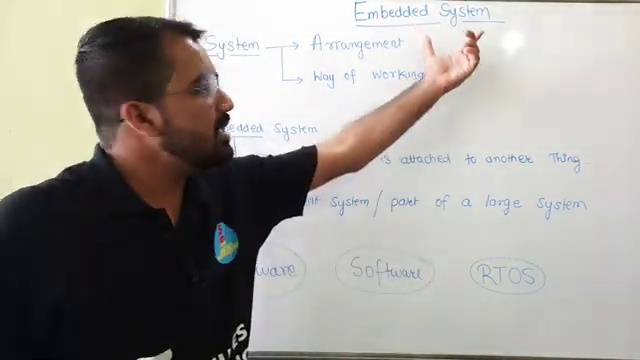 Embedded System
System → Arrangement
→ Way of working
System
is attached to another Thing
System / part of a large System
Software RTOS